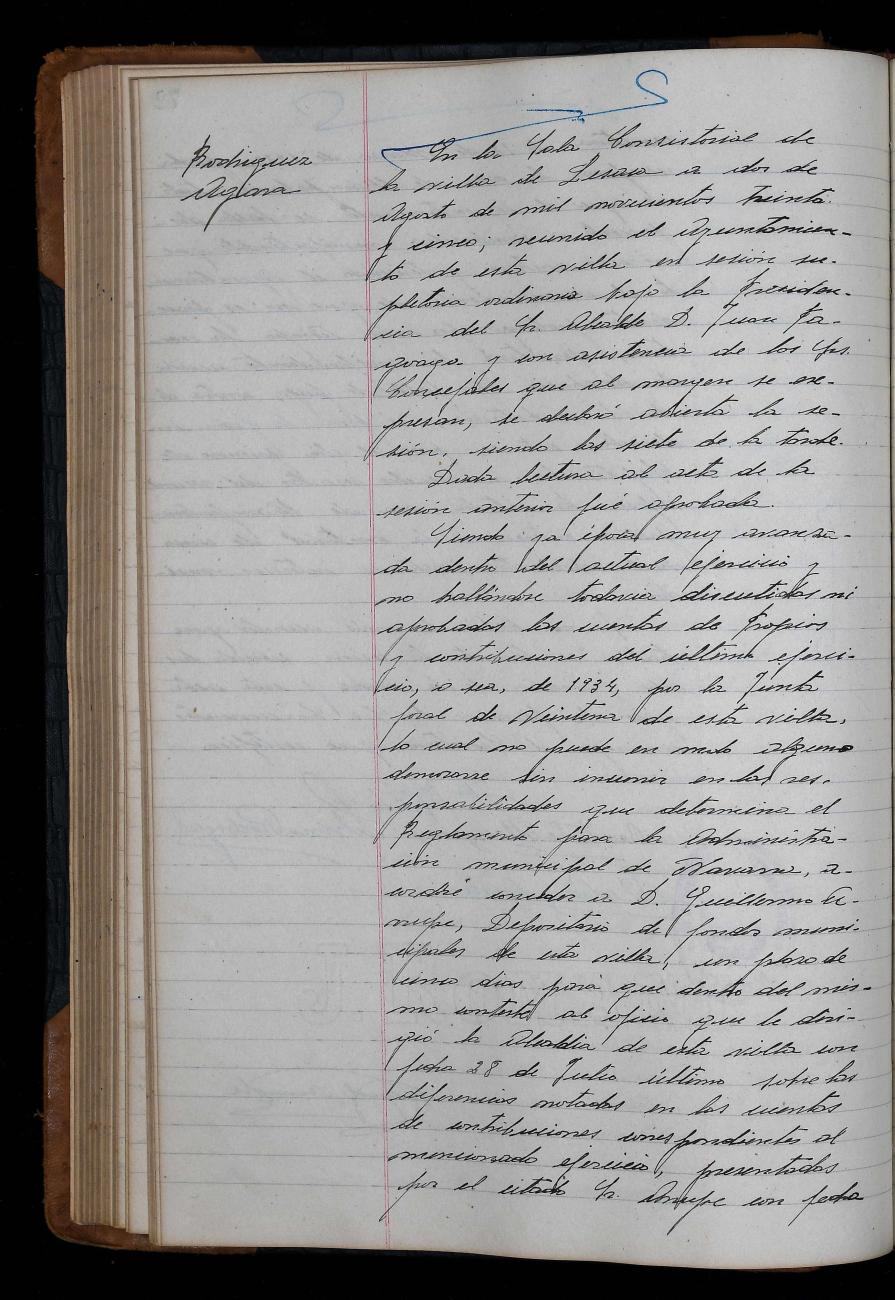 Rodriguez
Agara
En la Sala Consistorial de
la villa de Lesaca a dos de
Agosto de mil novecientos treinta
y cinco; reunido el Ayuntamien-
to de esta villa en sesión su-
pletoria ordinaria bajo la Presiden-
cia del Sr. Alcalde D. Juan Ta-
goaga y con asistencia de los Srs.
Concejales que al margen se ex-
presan, se declaró abierta la se-
sión, siendo las siete de la tarde.
Dada lectura al acta de la
sesión anterior fué aprobada.
Siendo ya época muy avanza-
da dentro del actual ejercicio y
no hallándose todavia discutidas ni
aprobadas las cuentas de Propios
y contribuciones del último ejerci-
cio, o sea, de 1934, por la Junta
foral de Veintena de esta villa,
lo cual no puede en modo alguno
demorarse sin incurrir en las res-
ponsabilidades que determina el
Reglamento para la Administra-
ción municipal de Navarra, a-
cordó conceder a D. Guillermo
Depositario de fondos muni-
cipales de esta villa, un plazo de
cinco dias para que dentro del mis-
mo conteste al oficio que le diri-
gió la Alcaldia de esta villa con
fecha 28 de Julio último sobre las
diferencias notadas en las cuentas
de contribuciones correspondientes al
mencionado ejercicio, presentadas
por el citado Sr. con fecha